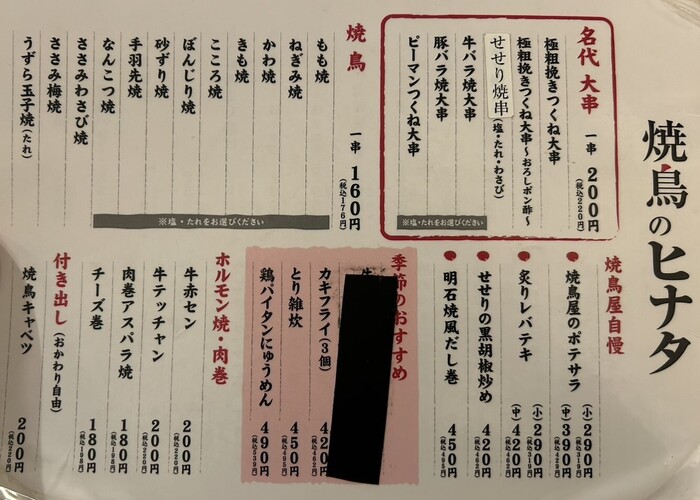 焼鳥のヒナタ
名代 大串 一串 200円(税込220円)
極粗挽きつくね大串
極粗挽きつくね大串～おろしポン酢～
せせり焼串(塩・たれ・わさび)
牛バラ焼大串
豚バラ焼大串
ピーマンつくね大串
※塩・たれをお選びください
焼鳥 一串 160円(税込176円)
もも焼
ねぎみ焼
かわ焼
きも焼
こころ焼
ぼんじり焼
砂ずり焼
手羽先焼
なんこつ焼
ささみわさび焼
ささみ梅焼
うずら玉子焼(たれ)
※塩・たれをお選びください
焼鳥屋自慢
焼鳥屋のポテサラ (小)290円(税込319円) (中)390円(税込429円)
炙りレバテキ (小)290円(税込319円) (中)420円(税込462円)
せせりの黒胡椒炒め 420円(税込462円)
明石焼風だし巻 450円(税込495円)
季節のおすすめ
カキフライ(3個) 420円(税込462円)
とり雑炊 450円(税込495円)
鶏パイタンにゅうめん 490円(税込539円)
ホルモン焼・肉巻
牛赤セン 200円(税込220円)
牛テッチャン 200円(税込220円)
肉巻アスパラ焼 180円(税込198円)
チーズ巻 180円(税込198円)
付き出し(おかわり自由)
焼鳥キャベツ 200円(税込220円)